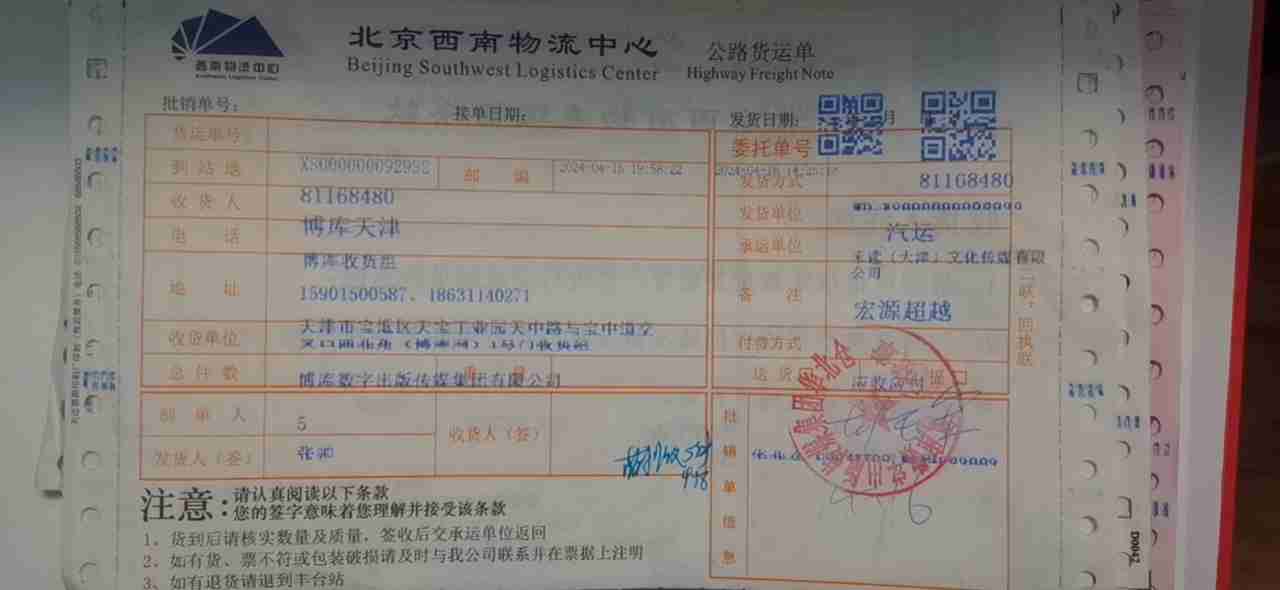 西南物流中心
北京西南物流中心
公路货运单
Beijing Southwest Logistics Center
Highway Freight Note
批销单号:
接单日期:
发货日期:
月
货运单号
委托单号
到站地
XS000000092992
邮 编
2024-04-16 19:58:22
发货方式
81168480
收货人
81168480
发货单位
电 话
博库天津
承运单位
汽运
博库收货组
禾读(天津)文化传媒有限
公司
地 址
15901500587、18631140271
备 注
宏源超越
收货单位
天津市宝坻区天宝工业园天中路与宝中道交
叉口西北角(博库网)1号门收货组
付费方式
总件数
博库数字出版传媒集团有限公司
重 量
送 货
应收应付
制单人
5
收货人(签)
批
销
单
信
息
发货人(签)
张帅
二联:回执联
注意:
请认真阅读以下条款
您的签字意味着您理解并接受该条款
1、货到后请核实数量及质量,签收后交承运单位返回
2、如有货、票不符或包装破损请及时与我公司联系并在票据上注明
3、如有退货请退到丰台站
D0042